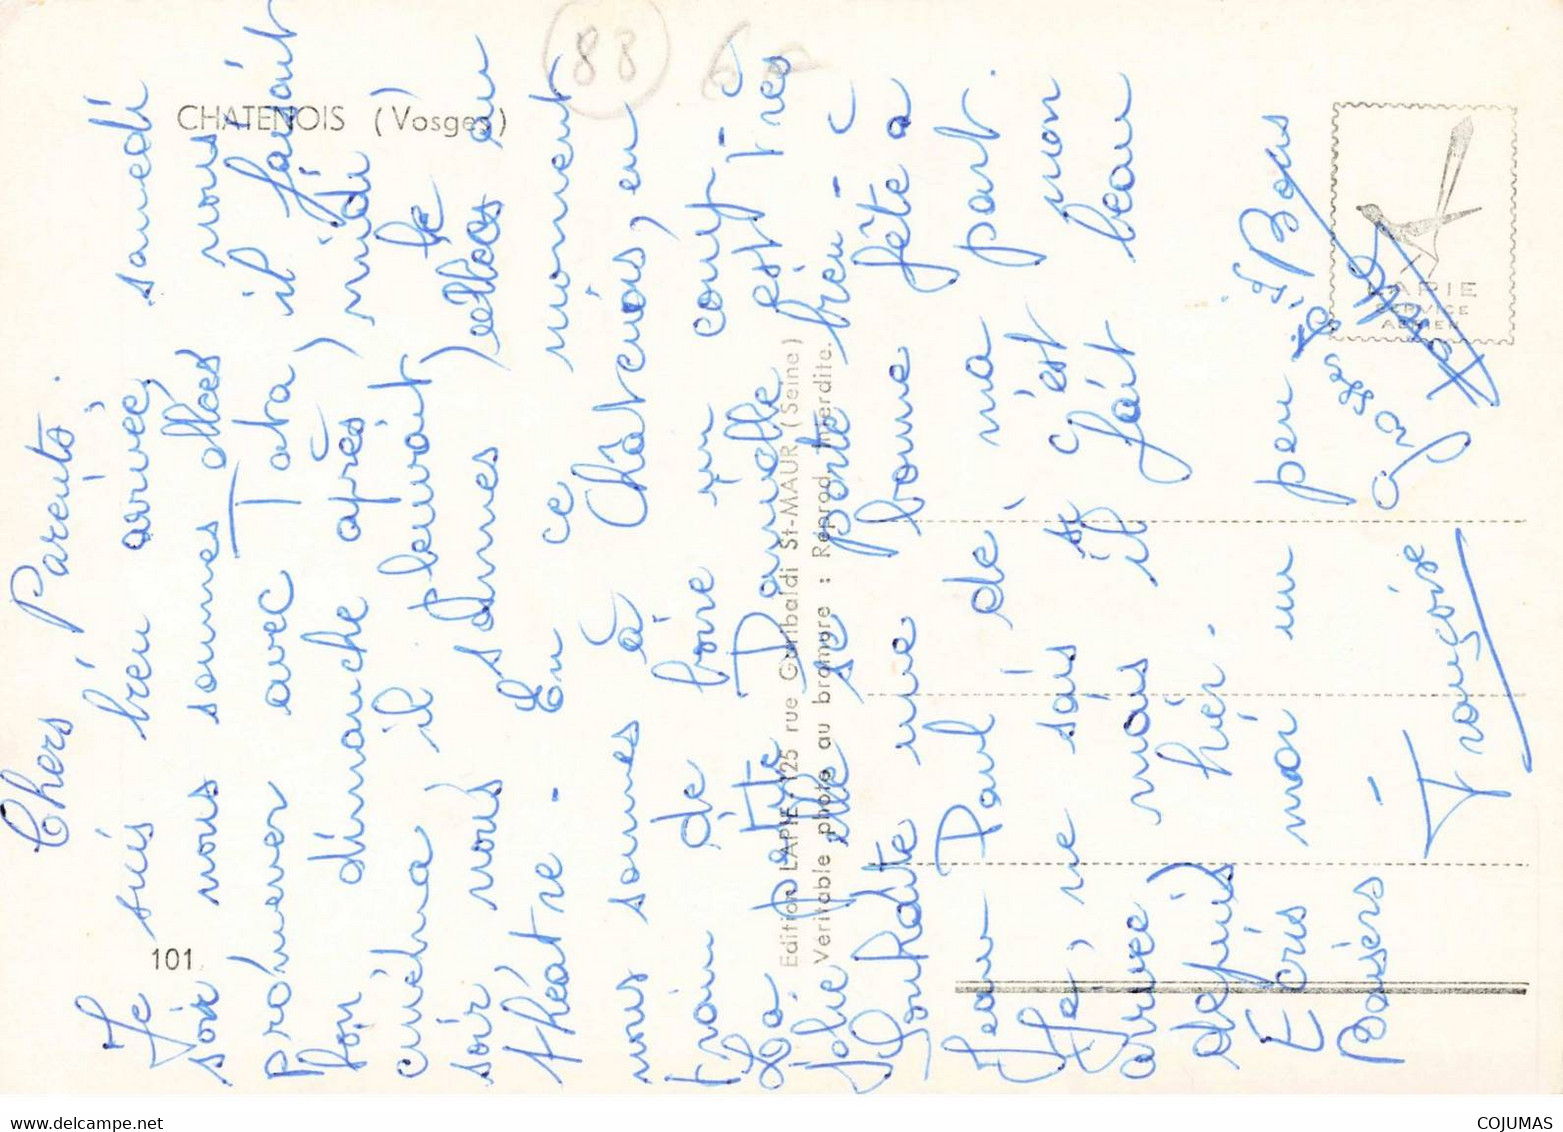 CHATENOIS (Vosges)
88
101
Chers Parents.
Je suis bien arrivée, samedi
soir nous sommes allées nous
promener avec Tata, il faisait
bon dimanche après) midi le
cinéma il pleuvait) le
soir nous sommes allées au
théatre - En ce moment
nous sommes à Châtenois, en
train de boire un coup -
La petite Danielle est très
jolie elle se porte bien -
Souhaite une bonne fête à
Jean Paul de ma part.
(Je ne sais si c'est mon
arrivée) mais il fait beau
depuis hier.
Ecris moi un peu
Baisers -
Grosses Bises
Françoise
Edition LAPIE - 125 rue Garibaldi St-MAUR (Seine)
Veritable photo au bromure : Reprod. interdite.
LAPIE
SERVICE
AERIEN
COJUMAS